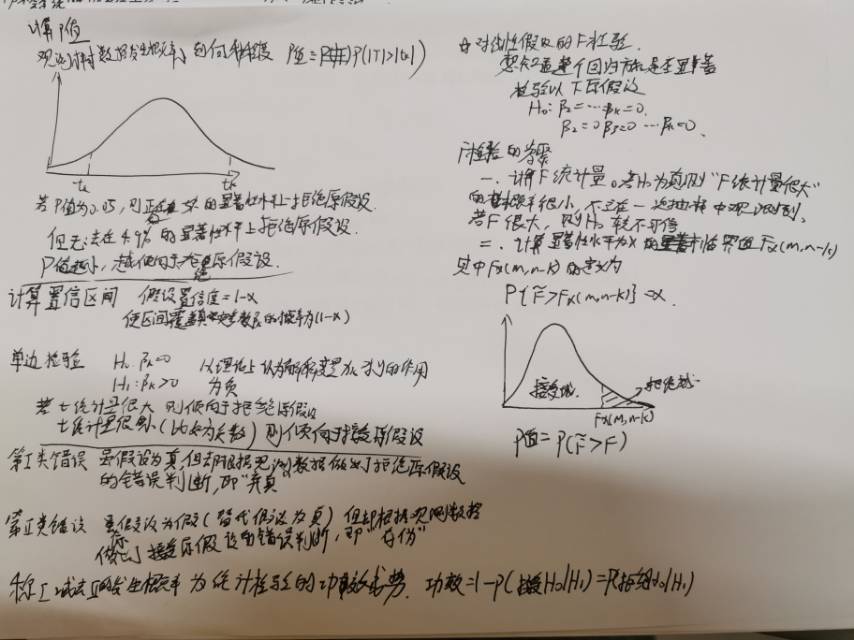 计算P值
P值=P(|T|>|tk|)
若P值为0.05,则正好在5%的显著性水平上拒绝原假设.
但无法在4.9%的显著性水平上拒绝原假设.
P值越小,越倾向于拒绝原假设.
计算置信区间 假设置信度=1-α
使区间覆盖真实参数的概率为(1-α)
单边检验 H0: βk=0
H1: βk>0
若t统计量很大 则倾向于拒绝原假设
t统计量很小(比如为负数)则倾向于接受原假设
第I类错误 虽假设为真,但却根据观测数据做出了拒绝原假设
的错误判断,即"弃真
第II类错误 虽原假设为假(替代假设为真)但却根据观测数据
做出了接受原假设的错误判断,即"存伪"
功效=1-P(接受H0|H1)=P(拒绝H0|H1)
对线性假设的F检验.
整个回归方程是否显著
检验以下原假设
H0: β2=…βk=0.
β2=0 β3=0 … βk=0.
F检验的步骤
一.计算F统计量。若H0为真,则"F统计量很大"
的概率很小,不应在一次抽样中观测到.
若F很大,则H0较不可信
二.计算显著性水平为α的临界值Fα(m,n-k)
其中Fα(m,n-k)的定义为
P{F̃>Fα(m,n-k)}=α.
接受域
拒绝域
Fα(m,n-k)
P值=P(F̃>F)